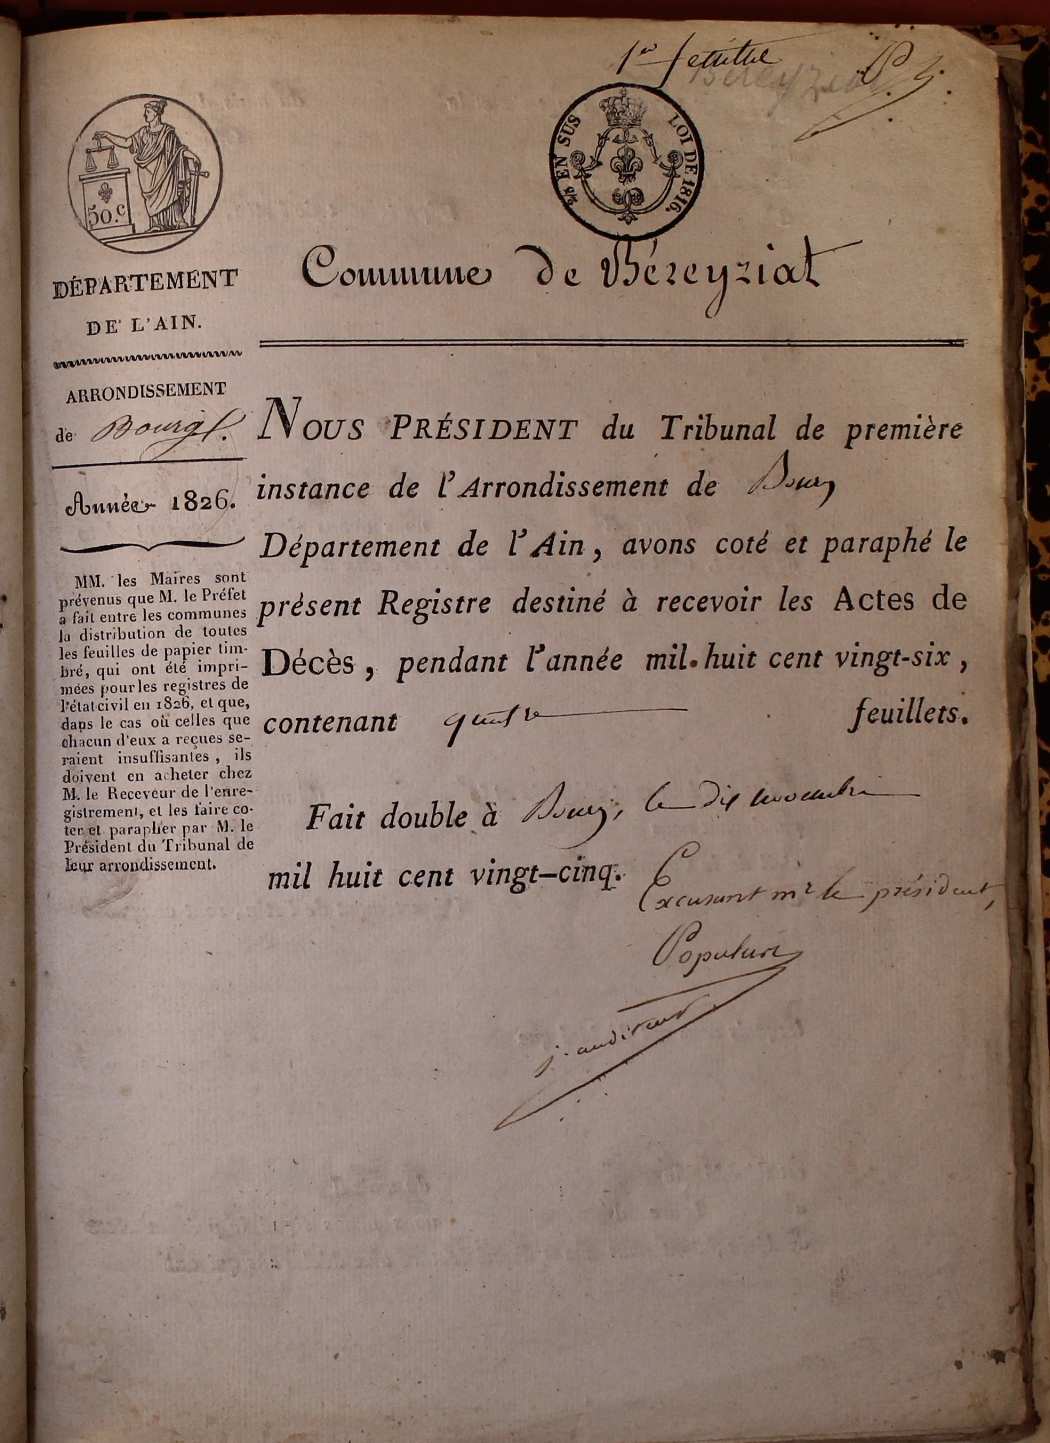 1er feuillet
Béreyziat
2/8 EN SUS
LOI DE 1816.
50.c
Commune de Béreyziat
DÉPARTEMENT
DE L'AIN.
ARRONDISSEMENT
de Bourg.
Année 1826.
MM. les Maires sont
prévenus que M. le Préfet
a fait entre les communes
la distribution de toutes
les feuilles de papier tim-
bré, qui ont été impri-
mées pour les registres de
l'état civil en 1826, et que,
dans le cas où celles que
chacun d'eux a reçues se-
raient insuffisantes, ils
doivent en acheter chez
M. le Receveur de l'enre-
gistrement, et les faire co-
ter et parapher par M. le
Président du Tribunal de
leur arrondissement.
NOUS PRÉSIDENT du Tribunal de première
instance de l'Arrondissement de Bourg
Département de l'Ain, avons coté et paraphé le
présent Registre destiné à recevoir les Actes de
Décès, pendant l'année mil huit cent vingt-six,
contenant quatre feuillets.
Fait double à Bourg, le dix novembre
mil huit cent vingt-cinq.
Excusant mr le président,
Populus
j. auditeur